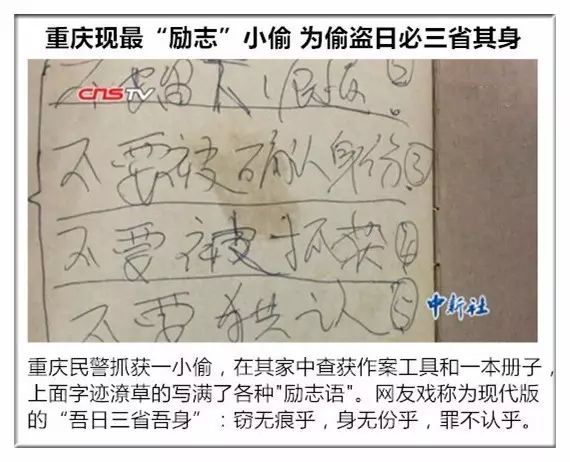 重庆现最“励志”小偷 为偷盗日必三省其身
CNSTV
不要留下
不要被确认身份③
不要被抓获④
不要供认⑤
中新社
重庆民警抓获一小偷，在其家中查获作案工具和一本册子，
上面字迹潦草的写满了各种"励志语"。网友戏称为现代版
的“吾日三省吾身”：窃无痕乎，身无份乎，罪不认乎。